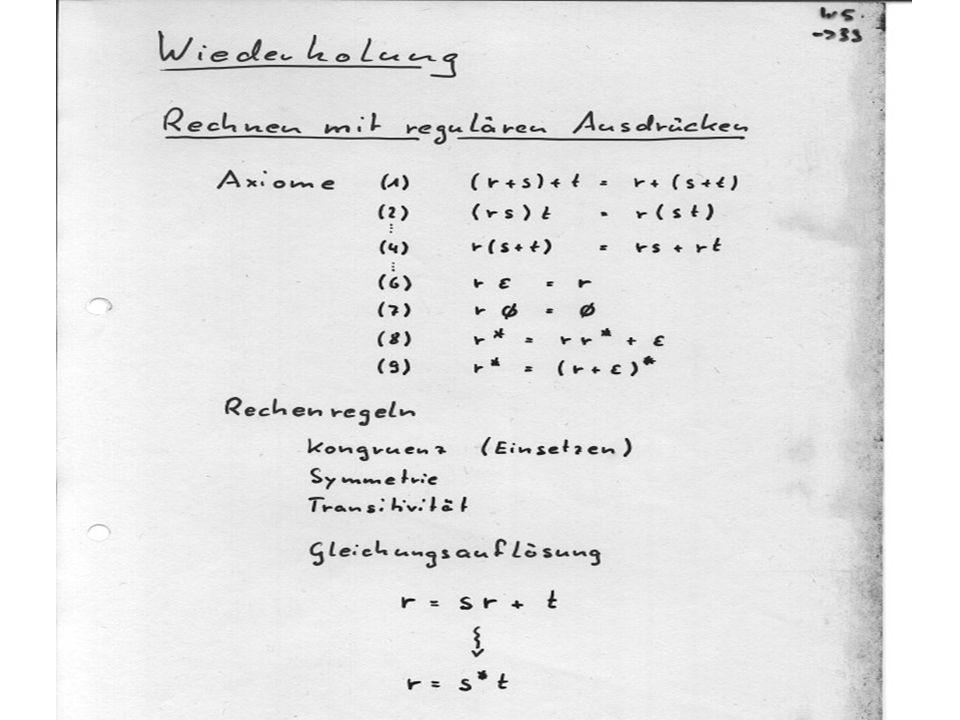 W5.
->33
Wiederholung
Rechnen mit regulären Ausdrücken
Axiome (1) (r+s)+t = r+(s+t)
(2) (rs)t = r(st)
⋮
(4) r(s+t) = rs + rt
⋮
(6) r ε = r
(7) r ø = ø
(8) r* = rr* + ε
(9) r* = (r+ε)*
Rechenregeln
Kongruenz (Einsetzen)
Symmetrie
Transitivität
Gleichungsauflösung
r = sr + t
r = s*t